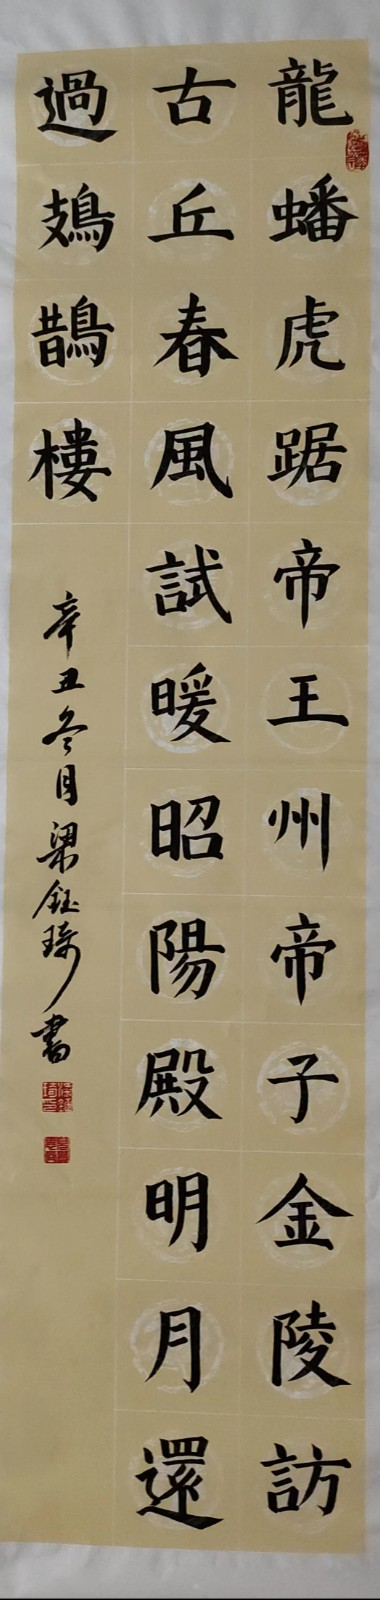 龍蟠虎踞帝王州帝子金陵訪
古丘春風試暖昭陽殿明月還
過鳷鵲樓
辛丑冬月梁鈺琦書